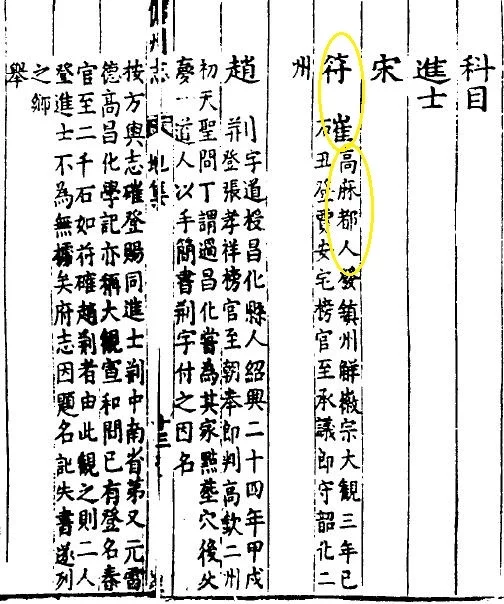 科目
進士
宋
符確高麻都人發鎮州解徽宗大觀三年己
丑登賈安宅榜官至承議郎守韶化二
州
趙荆字道授昌化縣人紹興二十四年甲戌
登張孝祥榜官至朝奉郎判高欽二州
初天聖間丁謂過昌化嘗為其家點墓穴後
慶一道人以手簡書荆字付之因名
儋州志 地集 廿三
按方輿志確登賜同進士荆中南省第又元雷
德高昌化學記亦稱大觀宣和間已有登名春
官至二千石如符確趙荆者由此觀之則二人
登進士不為無據矣府志因題名記失書遂列
之鄉
舉